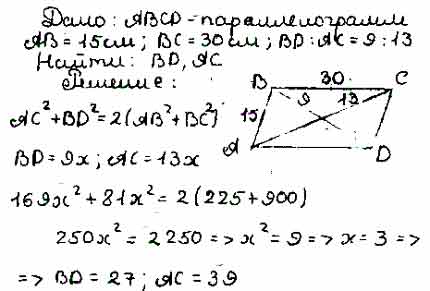 Дано: ABCD - параллелограмм
AB = 15 см; BC = 30 см; BD : AC = 9 : 13
Найти: BD, AC
Решение:
AC² + BD² = 2(AB² + BC²)
BD = 9x; AC = 13x
169x² + 81x² = 2(225 + 900)
250x² = 2250 => x² = 9 => x = 3 =>
=> BD = 27; AC = 39
B 30 C
9 13
15
A D